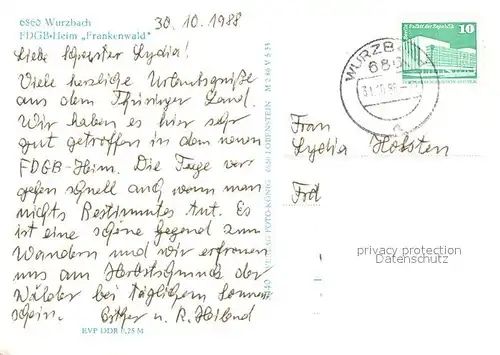 6860 Wurzbach
FDGB-Heim „Frankenwald"
30.10.1988
Liebe Schwester Lydia!
Viele herzliche Urlaubsgrüße
aus dem Thüringer Land.
Wir haben es hier sehr
gut getroffen in dem neuen
FDGB-Heim. Die Tage ver-
gehen schnell auch wenn man
nichts Bestimmtes tut. Es
ist eine schöne Gegend zum
Wandern und wir erfreuen
uns am Herbstschmuck der
Wälder bei täglichem Sonnen-
schein. Esther u. R. Heiland
EVP DDR 0,25 M
VERLAG FOTO-KÖNIG 6850 LOBENSTEIN M 2 66 V 5 33
Palast der Republik
10
WURZB
a
Frau
Lydia Holsten
Frd
privacy protection
Datenschutz